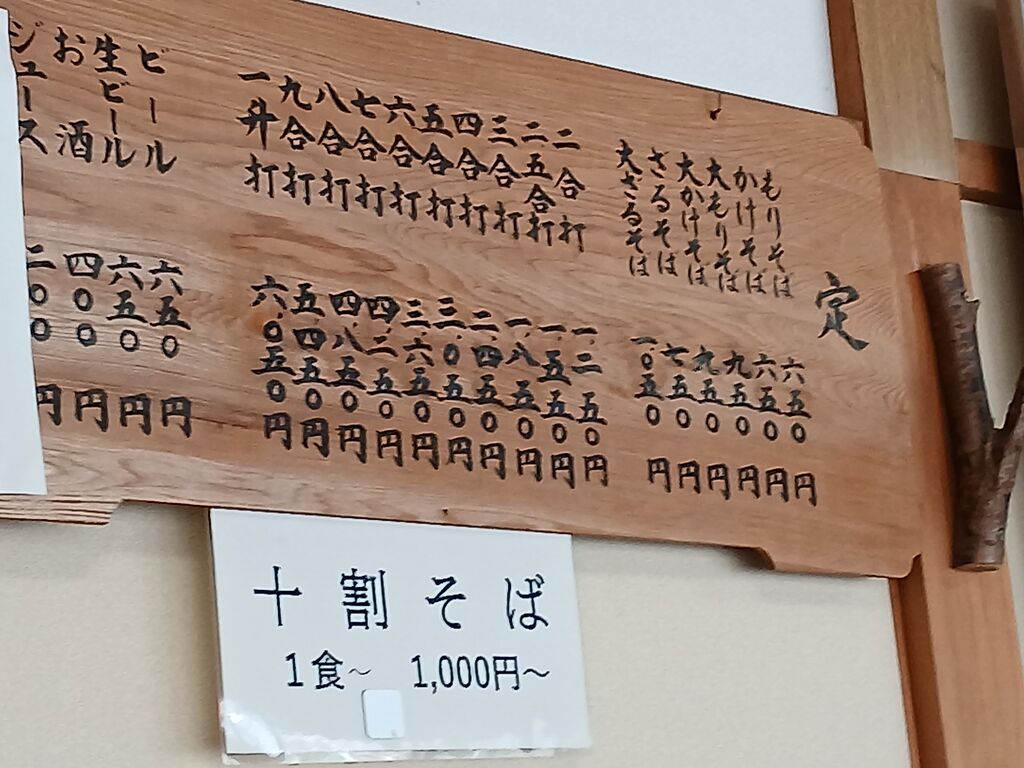 定
もりそば 六五〇円
かけそば 六五〇円
大もりそば 九五〇円
大かけそば 九五〇円
ざるそば 七五〇円
大ざるそば 一.〇五〇円
二合打 一.二五〇円
二五合打 一.五五〇円
三合打 一.八五〇円
四合打 二.四五〇円
五合打 三.〇五〇円
六合打 三.六五〇円
七合打 四.二五〇円
八合打 四.八五〇円
九合打 五.四五〇円
一升打 六.〇五〇円
ビール 六五〇円
生ビール 六五〇円
お酒 四〇〇円
ジュース 二〇〇円
十割そば
1食～ 1,000円～